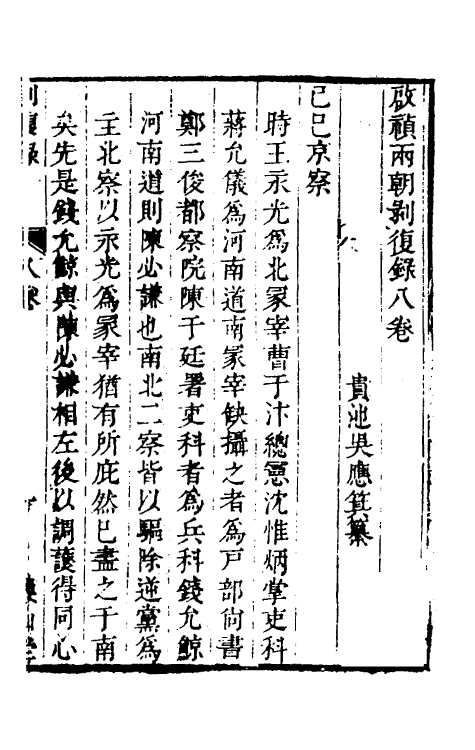 啟禎兩朝剝復錄八卷
貴池吳應箕纂
己巳京察
時王永光爲北冢宰曹于汴總憲沈惟炳掌吏科
蔣允儀爲河南道南冢宰缺攝之者爲戸部尙書
鄭三俊都察院陳于廷署吏科者爲兵科錢允鯨
河南道則陳必謙也南北二察皆以驅除逆黨爲
主北察以永光爲冢宰猶有所庇然已盡之于南
矣先是錢允鯨與陳必謙相左後以調護得同心
剝復錄
八卷